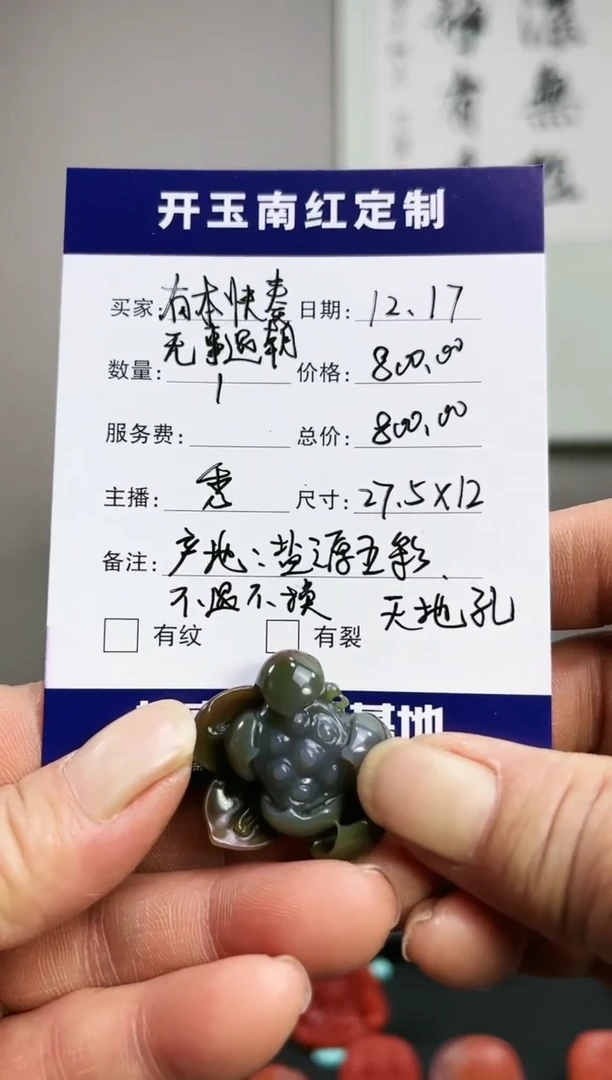 开玉南红定制
买家:有本快奏 日期: 12.17
无事退朝
数量: 1 价格: 800.00
服务费: 总价: 800.00
主播: 秀 尺寸: 27.5X12
备注: 产地:盐源五彩
不退不换 天地孔
有纹 有裂
基地